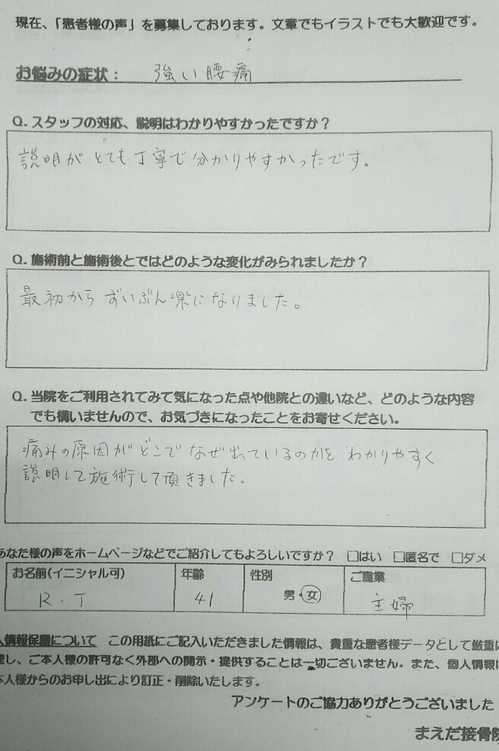 現在、「患者様の声」を募集しております。文章でもイラストでも大歓迎です。
お悩みの症状： 強い腰痛
Q. スタッフの対応、説明はわかりやすかったですか？
説明がとても丁寧で分かりやすかったです。
Q. 施術前と施術後とではどのような変化がみられましたか？
最初からずいぶん楽になりました。
Q. 当院をご利用されてみて気になった点や他院との違いなど、どのような内容
でも構いませんので、お気づきになったことをお寄せください。
痛みの原因がどこでなぜ出ているのかをわかりやすく
説明して施術して頂きました。
あなた様の声をホームページなどでご紹介してもよろしいですか？ □はい □匿名で □ダメ
お名前(イニシャル可) 年齢 性別 ご職業
R.T 41 男・女 主婦
人情報保護について この用紙にご記入いただきました情報は、貴重な患者様データとして厳重に
理し、ご本人様の許可なく外部への開示・提供することは一切ございません。また、個人情報は
本人様からのお申し出により訂正・削除いたします。
アンケートのご協力ありがとうございました
まえだ接骨院